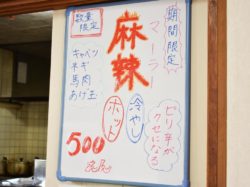 期間限定
麻辣
マーラー
数量
限定
キャベツ
ネギ
馬肉
あげ玉
冷やし
ホット
ピリ辛が
クセになる
500